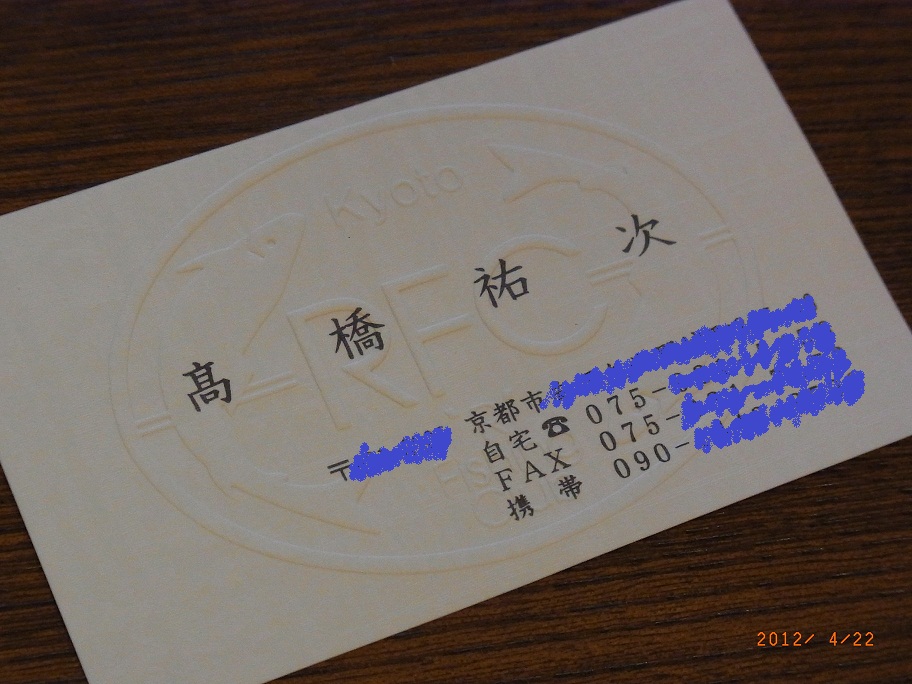 Kyoto
RFC
髙橋祐次
〒
京都市
自宅☎ 075-
FAX 075-
携帯 090-
2012/ 4/22